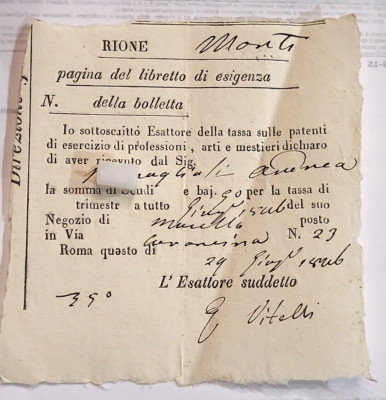 RIONE Monti
pagina del libretto di esigenza
N. della bolletta
Io sottoscritto Esattore della tassa sulle patenti
di esercizio di professioni, arti e mestieri dichiaro
di aver ricevuto dal Sig.
Andrea
la somma di Scudi e baj. 90 per la tassa di
trimestr a tutto Giug.º del suo
Negozio di macello posto
in Via N. 23
Roma questo dì 29 Giug.º
L'Esattore suddetto
35º
Vitelli
Direzione